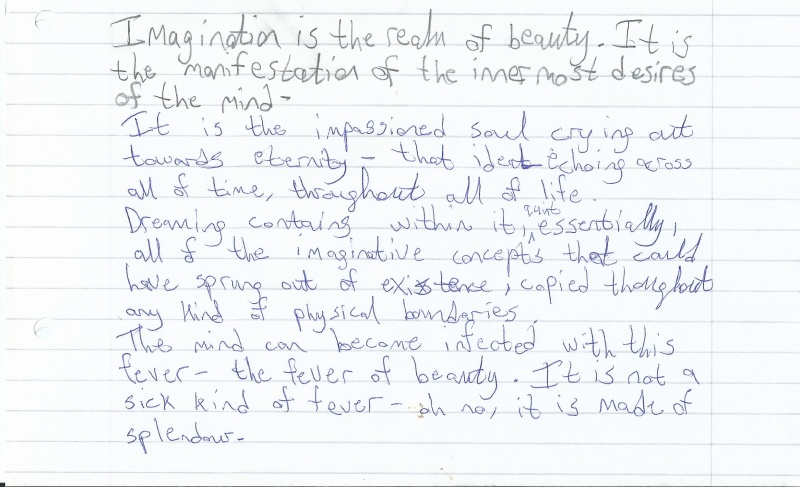 Imagination is the realm of beauty. It is
the manifestation of the inner most desires
of the mind-
It is the impassioned soul crying out
towards eternity - that ideal echoing across
all of time, throughout all of life.
Dreaming contains within it, quintessentially,
all of the imaginative concepts that could
have sprung out of existence, copied thoughout
any kind of physical boundaries.
The mind can become infected with this
fever - the fever of beauty. It is not a
sick kind of fever - oh no, it is made of
splendour-